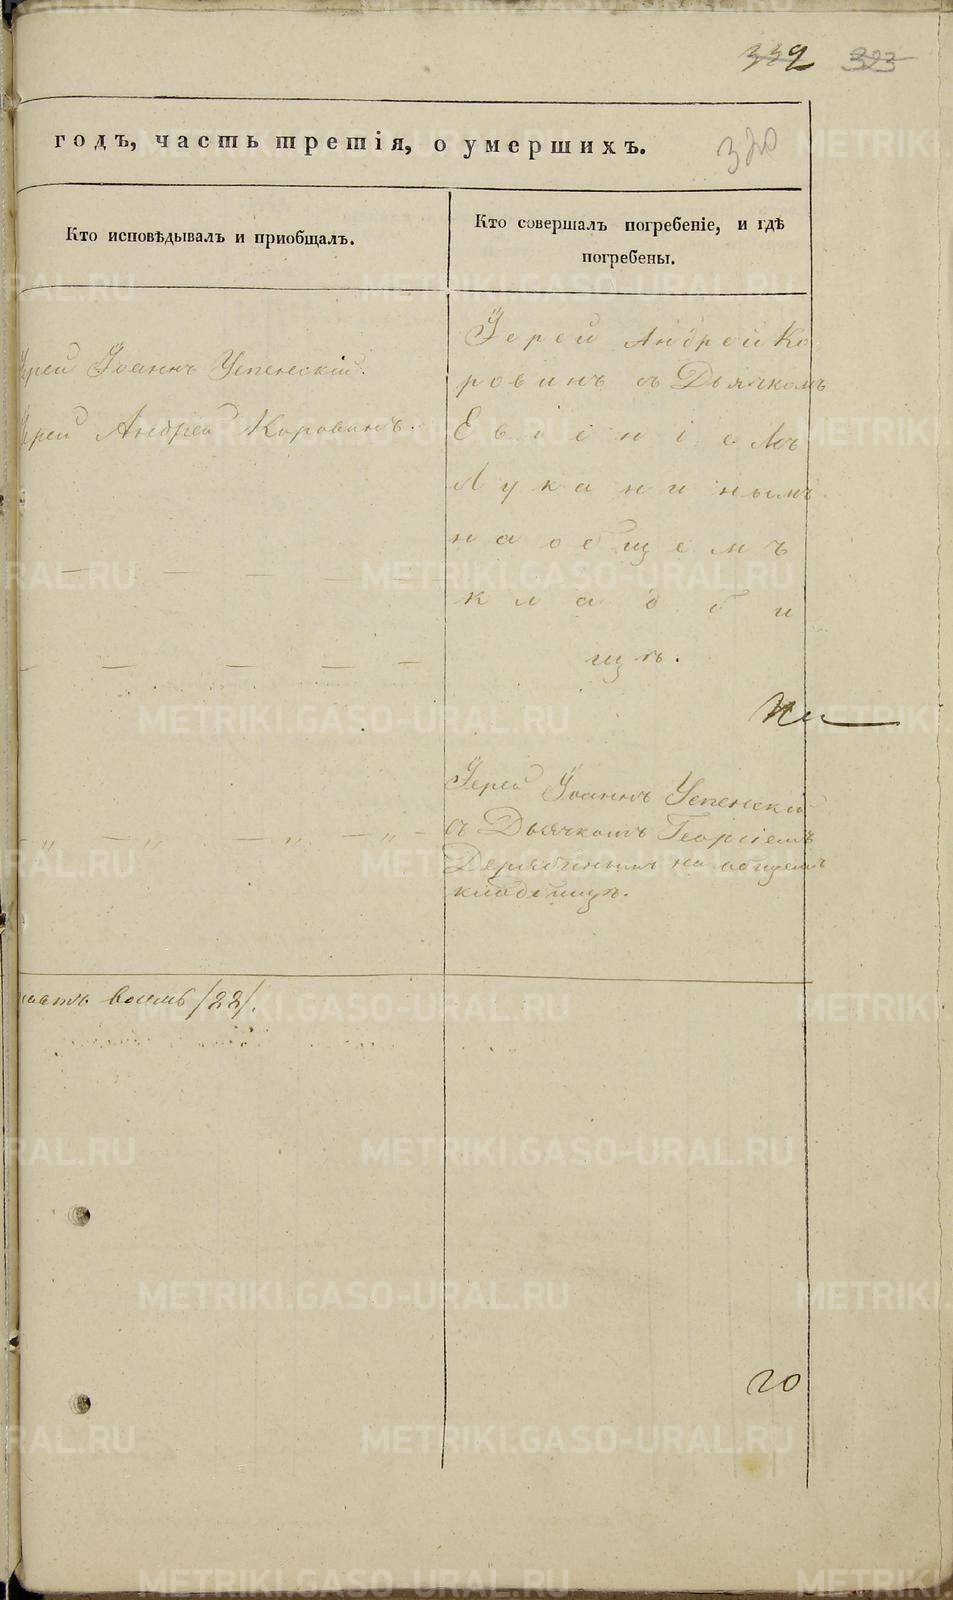 339 323
годъ, часть третія, о умершихъ. 320
Кто исповѣдывалъ и приобщалъ.
Кто совершалъ погребеніе, и гдѣ
погребены.
ерей Іоаннъ Успенскій.
ерей Андрей Коровинъ.
Іерей Андрей Ко
ровинъ съ Дьячкомъ
Евгеніемъ
Луканинымъ
на общемъ
кладби
щѣ.
Іерей Іоаннъ Успенскій
съ Дьячкомъ Георгіемъ
Дерябинымъ на общемъ
кладбищѣ.
восемь /28/.
20
METRIKI.GASO-URAL.RU